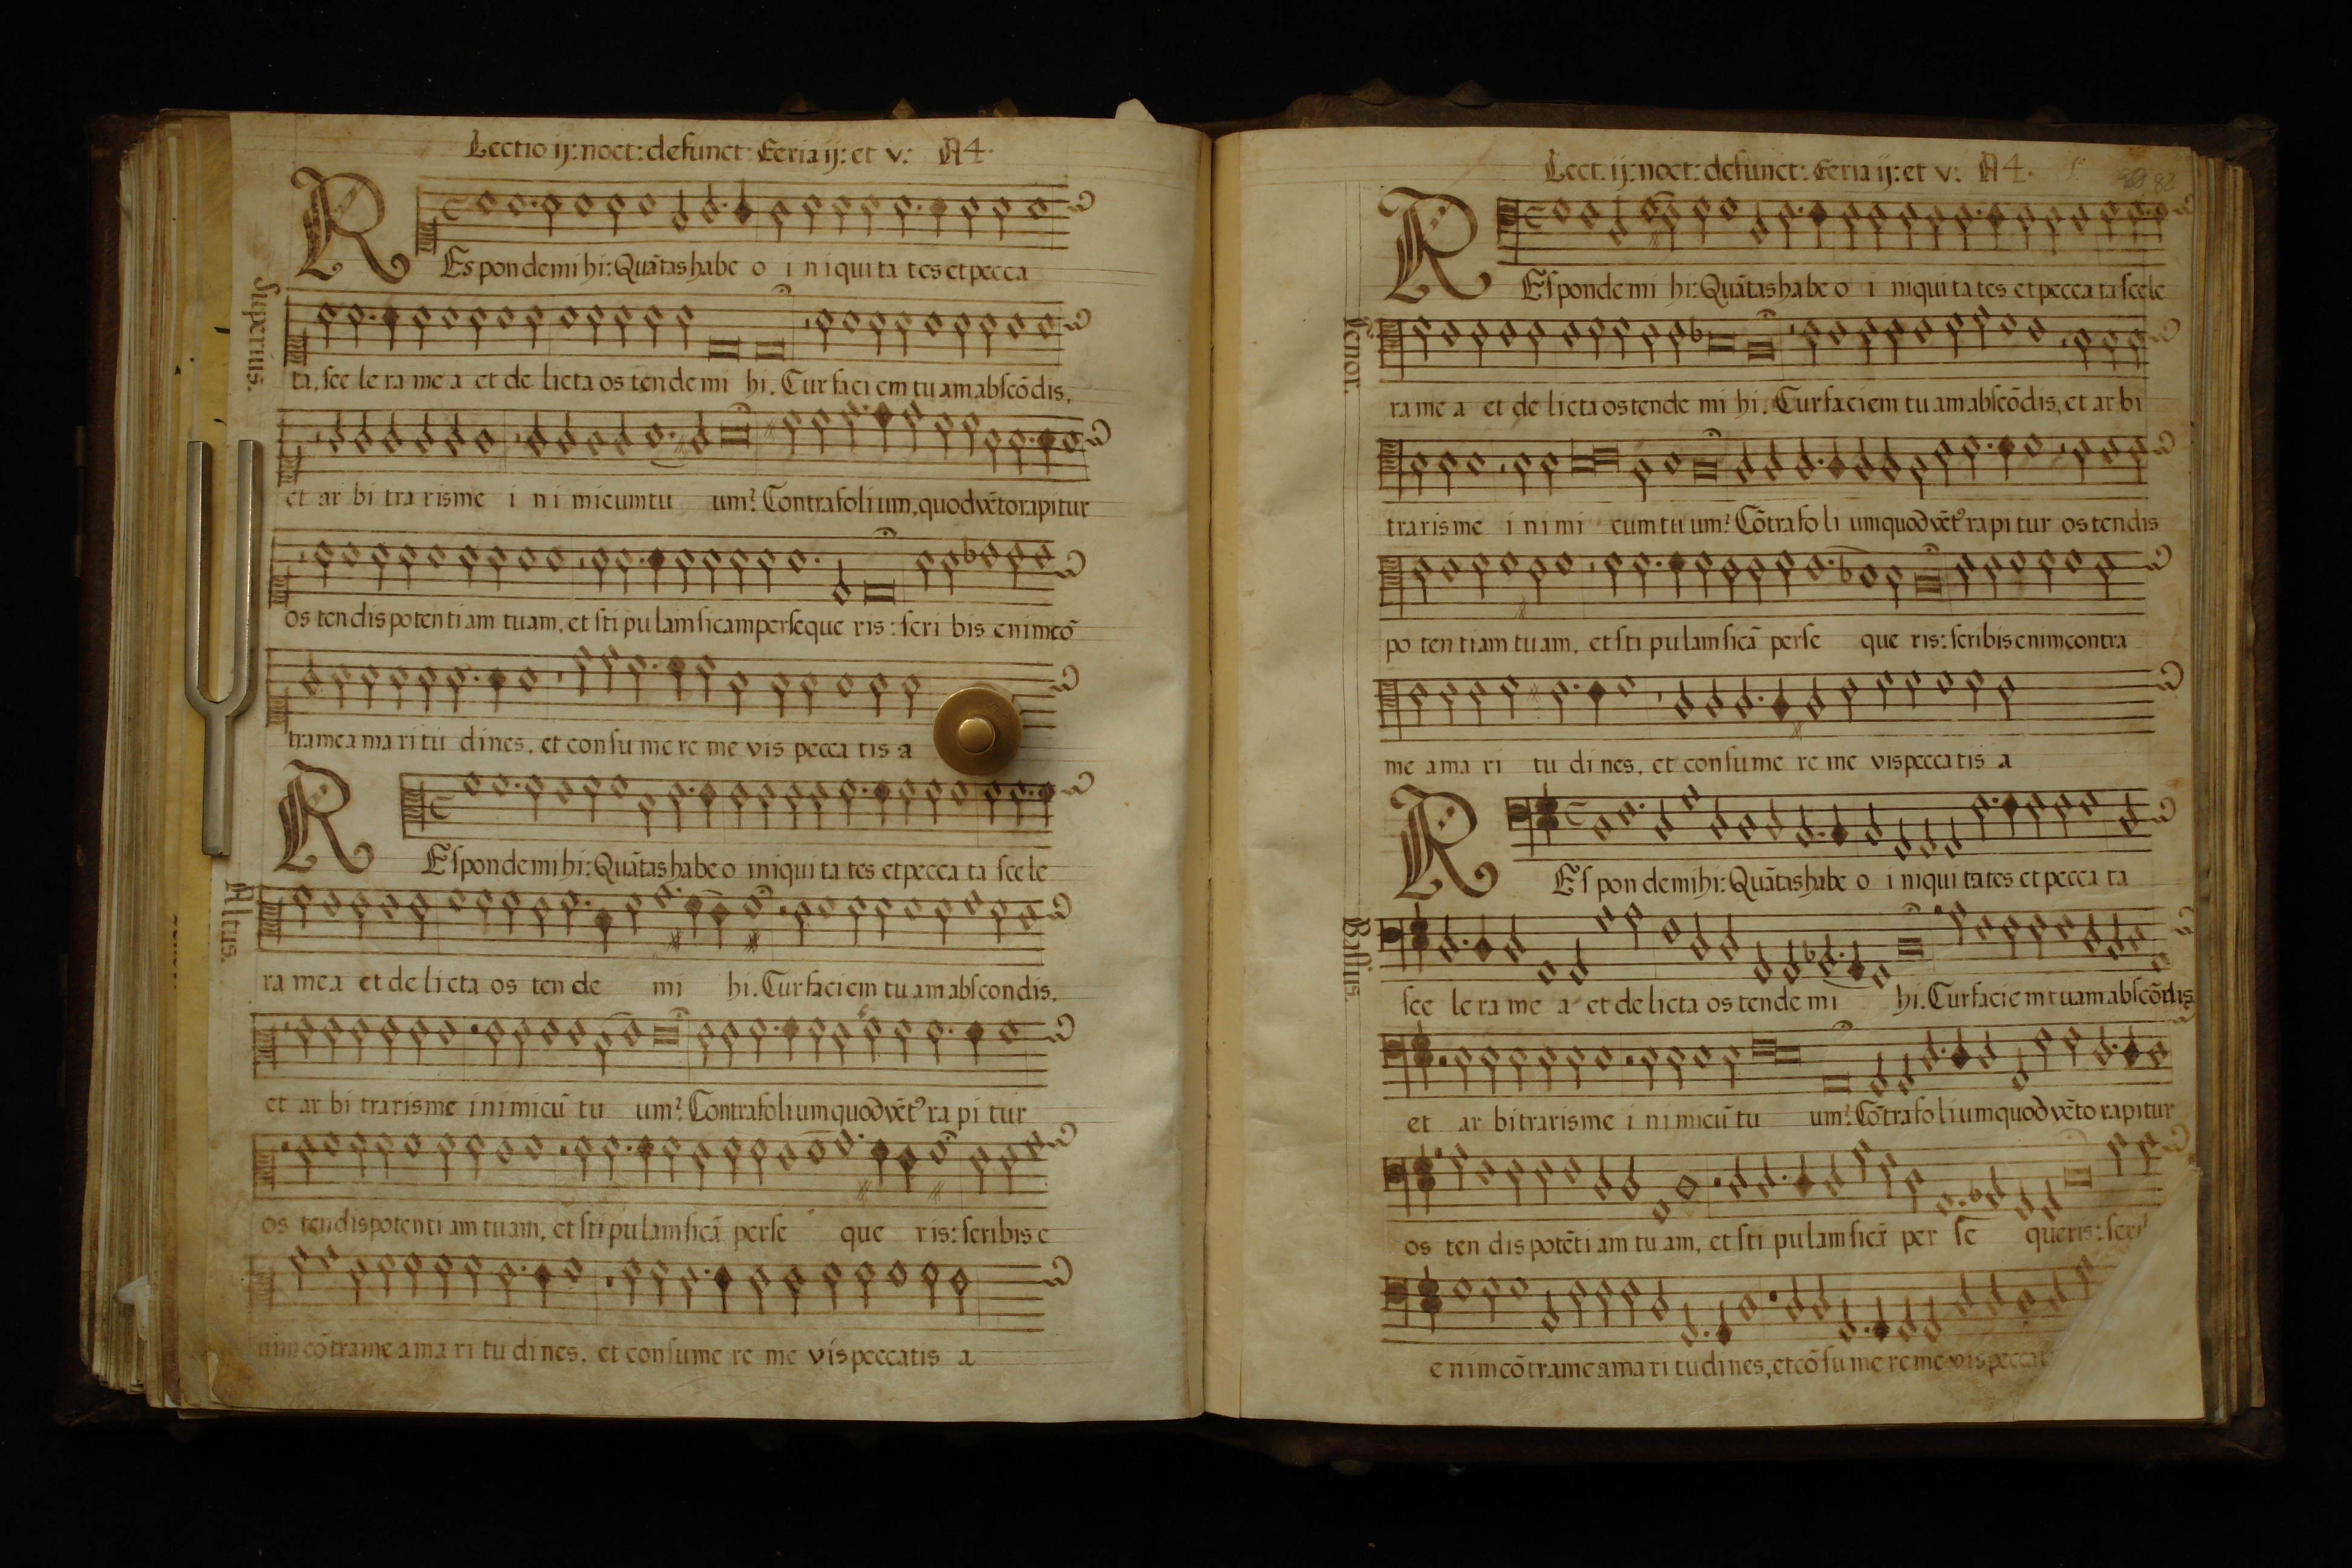 Lectio ij: noct: defunct: Feria ij: et v: A4.
Superius.
REspondemi hi: Quãtas habe o i niqui ta tes et pecca
ta, sce le ra me a et de licta os tende mi hi. Cur faci em tu am abscõdis,
et ar bi tra ris me i ni micum tu um? Contra foli um, quod vẽto rapitur
os tendis potenti am tuam, et sti pu lam siccam perseque ris: scri bis enim cõ
tra me a ma ri tu dines, et consu me re me vis pecca tis a
Altus.
REspondemihi: Quãtas habe o iniqui ta tes et pecca ta sce le
ra mea et de licta os ten de mi hi. Cur faciem tu am abscondis,
et ar bi trarisme inimicũ tu um? Contra folium quod vẽt' ra pi tur
os tendis potenti am tuam, et sti pulam siccã perse que ris: scribis e
nim cõtra me a ma ri tu di nes, et consume re me vis peccatis a
Lect. ij: noct: defunct: Feria ij: et v: A4.
82
Tenor.
REsponde mi hi: Quãtas habe o i niqui ta tes et pecca ta scele
ra me a et de licta os tende mi hi. Cur faciem tu am abscõdis, et ar bi
traris me i ni mi cum tu um? Cõtra fo li um quod vẽt' ra pi tur os tendis
po ten tiam tu am, et sti pu lam siccã perse que ris: scribis enim contra
me ama ri tu di nes, et consume re me vis pecca tis a
Bassus.
REs pon demihi: Quãtas habe o i niqui tates et pecca ta
sce le ra me a et de licta os tende mi hi. Cur facie m tuam abscõdis
et ar bi traris me i ni micũ tu um? Cõtra foli um quod vẽto rapitur
os ten dis potẽti am tu am, et sti pu lam siccã per se queris: scri
e nim cõtra me ama ri tudi nes, et cõ su me re me vis peccat